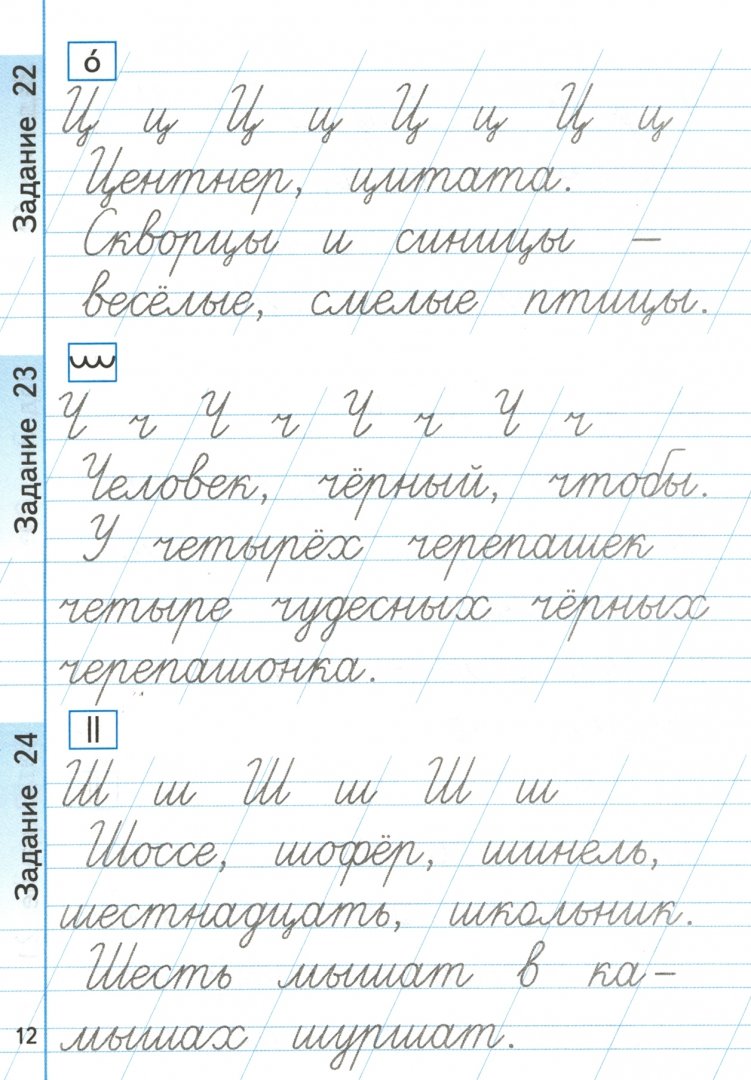 Задание 22
о́
Ц ц Ц ц Ц ц Ц ц
Центнер, цитата.
Скворцы и синицы –
весёлые, смелые птицы.
Задание 23
Ч ч Ч ч Ч ч Ч ч
Человек, чёрный, чтобы.
У четырёх черепашек
четыре чудесных чёрных
черепашонка.
Задание 24
Ш ш Ш ш Ш ш
Шоссе, шофёр, шинель,
шестнадцать, школьник.
Шесть мышат в ка-
мышах шуршат.
12